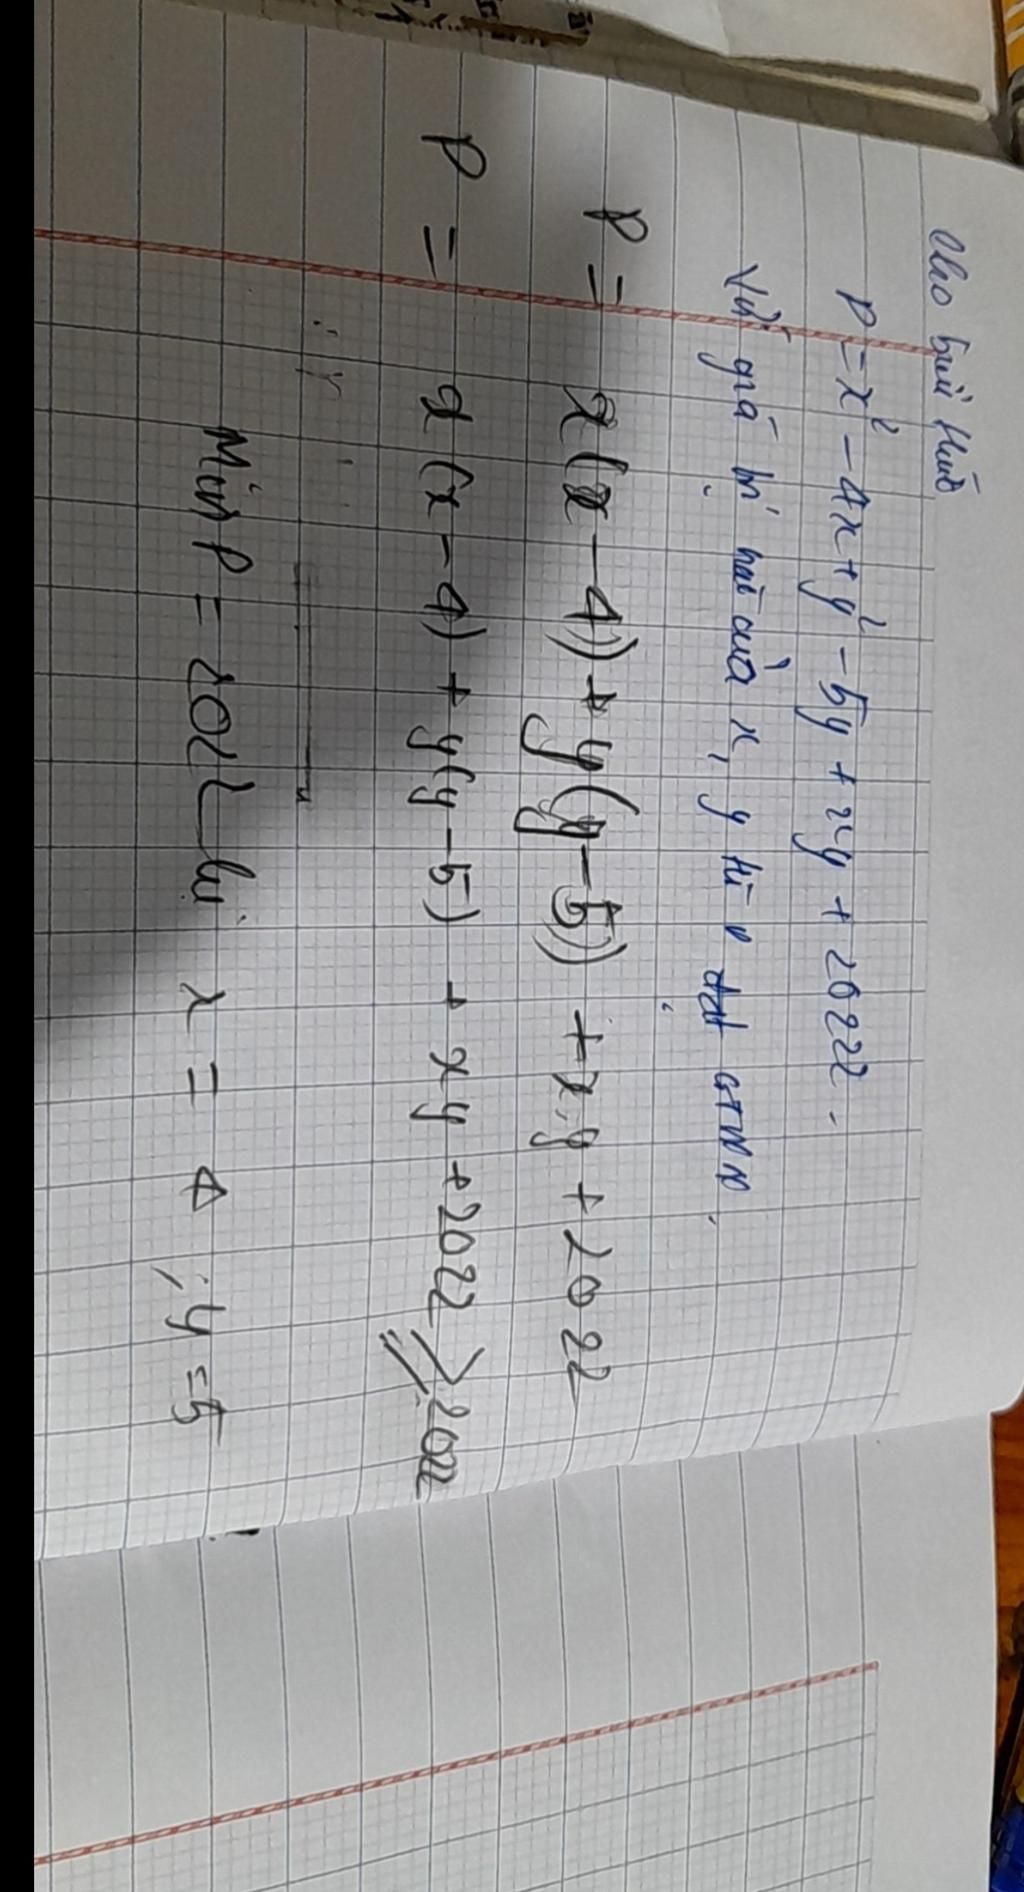 Cho biểu thức
P = x² - 4x + y² - 5y + xy + 2022.
Với giá trị nào của x, y thì P đạt GTNN.
P = x(x - 4) + y(y - 5) + x.y + 2022
P = x(x - 4) + y(y - 5) + xy + 2022 ≥ 2022
Min P = 2022 khi x = 4 ; y = 5